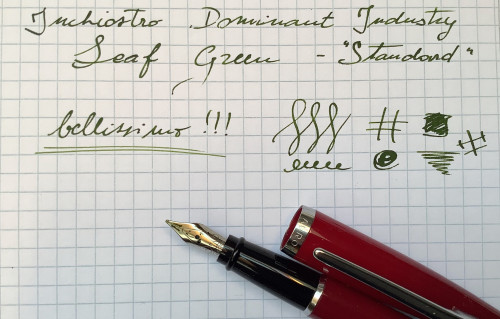 Inchiostro Dominant Industry
Leaf Green - "Standard"
bellissimo !!!